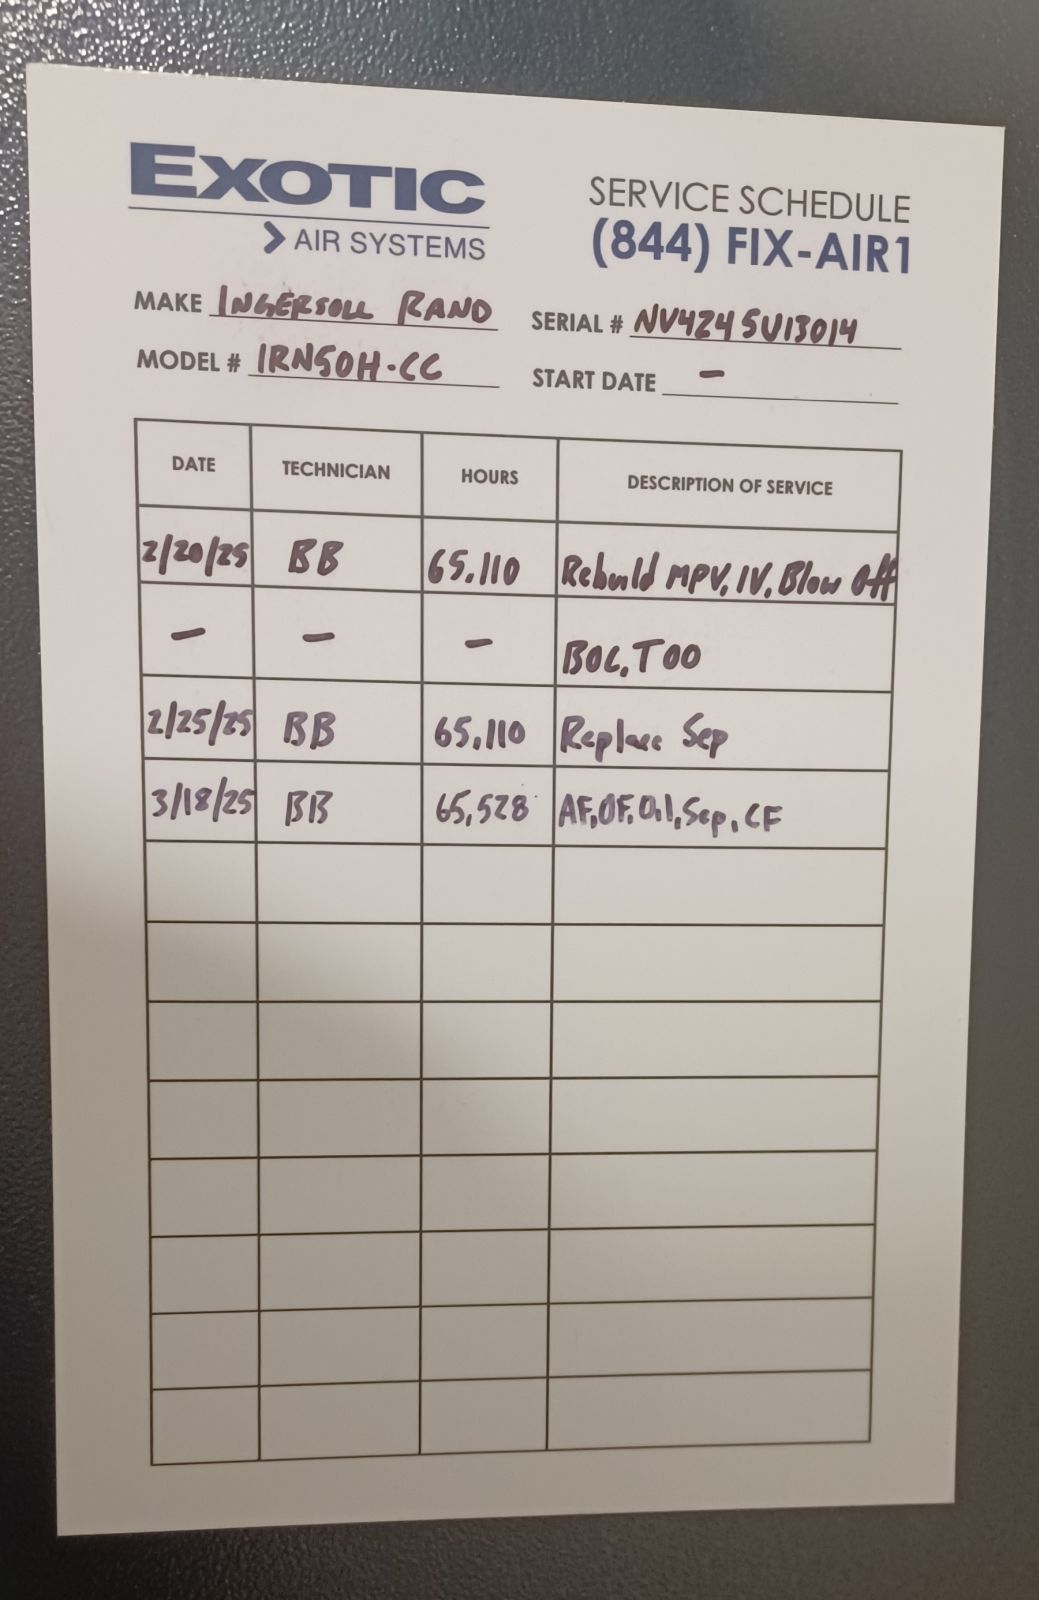 EXOTIC
AIR SYSTEMS
SERVICE SCHEDULE
(844) FIX-AIR1
MAKE INGERSOLL RAND
SERIAL # NV4245U13014
MODEL # IRN50H-CC
START DATE -
DATE TECHNICIAN HOURS DESCRIPTION OF SERVICE
2/20/25 BB 65,110 Rebuild MPV, IV, Blow Off
- - - BOC, TOO
2/25/25 BB 65,110 Replace Sep
3/18/25 BB 65,528 AF, OF, Oil, Sep, CF